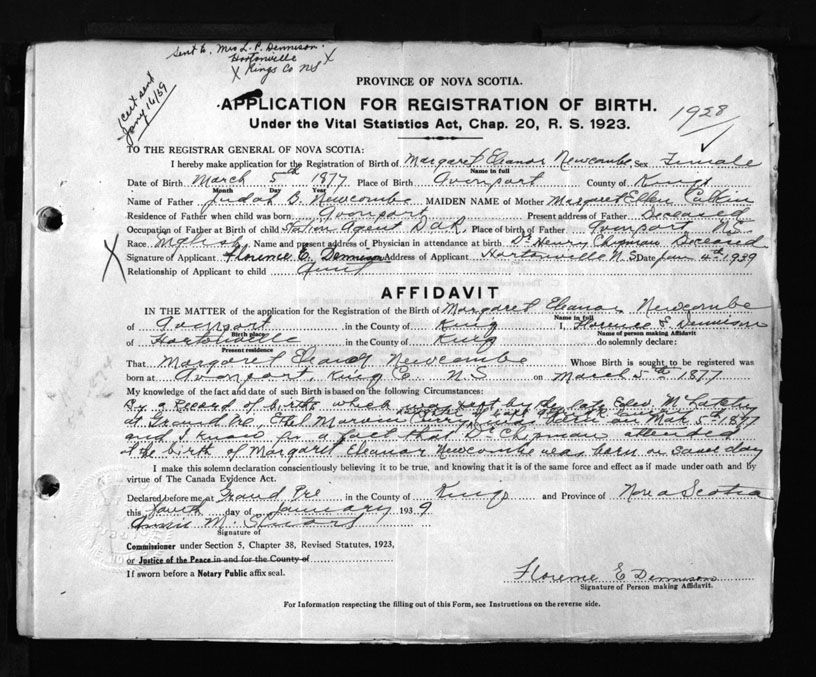 Sent to Mrs L. P. Dennison
Hortonville
X Kings Co NS X
cert sent
Jany 16/39
PROVINCE OF NOVA SCOTIA.
APPLICATION FOR REGISTRATION OF BIRTH.
1928
Under the Vital Statistics Act, Chap. 20, R. S. 1923.
TO THE REGISTRAR GENERAL OF NOVA SCOTIA:
I hereby make application for the Registration of Birth of Margaret Eleanor Newcombe Sex Female
Name in full
Date of Birth March 5th 1877 Place of Birth Avonport County of Kings
Month Day Year
Name of Father Judah B. Newcombe MAIDEN NAME of Mother Margaret Ellen Calkin
Residence of Father when child was born, Avonport Present address of Father Deceased
Occupation of Father at Birth of child Station Agent D A R. Place of birth of Father Avonport N.S.
Race English Name and present address of Physician in attendance at birth Dr Henry Chipman Deceased
X Signature of Applicant Florence E. Dennison Address of Applicant Hortonville N.S Date Jan 4th 1939
Relationship of Applicant to child Aunt
AFFIDAVIT
IN THE MATTER of the application for the Registration of the Birth of Margaret Eleanor Newcombe
Name in full
of Avonport in the County of King I, Florence E Dennison
Birth place Name of person making Affidavit
of Hortonville in the County of King do solemnly declare:
Present residence
That Margaret Eleanor Newcombe Whose Birth is sought to be registered was
born at Avonport, King Co. N S on March 5th 1877
My knowledge of the fact and date of such Birth is based on the following Circumstances:
By a Record of birth which was kept by the late
at Grand Pre, on Mar 5th 1877
and I know for a fact that Dr Chipman attended
at the birth of Margaret Eleanor Newcombe was born on same day
I make this solemn declaration conscientiously believing it to be true, and knowing that it is of the same force and effect as if made under oath and by
virtue of The Canada Evidence Act.
Declared before me at Grand Pre in the County of Kings and Province of Nova Scotia
this fourth day of January 1939
M.
Signature of
Commissioner under Section 5, Chapter 38, Revised Statutes, 1923,
or Justice of the Peace in and for the County of
If sworn before a Notary Public affix seal.
Florence E Dennison
Signature of Person making Affidavit.
For Information respecting the filling out of this Form, see Instructions on the reverse side.